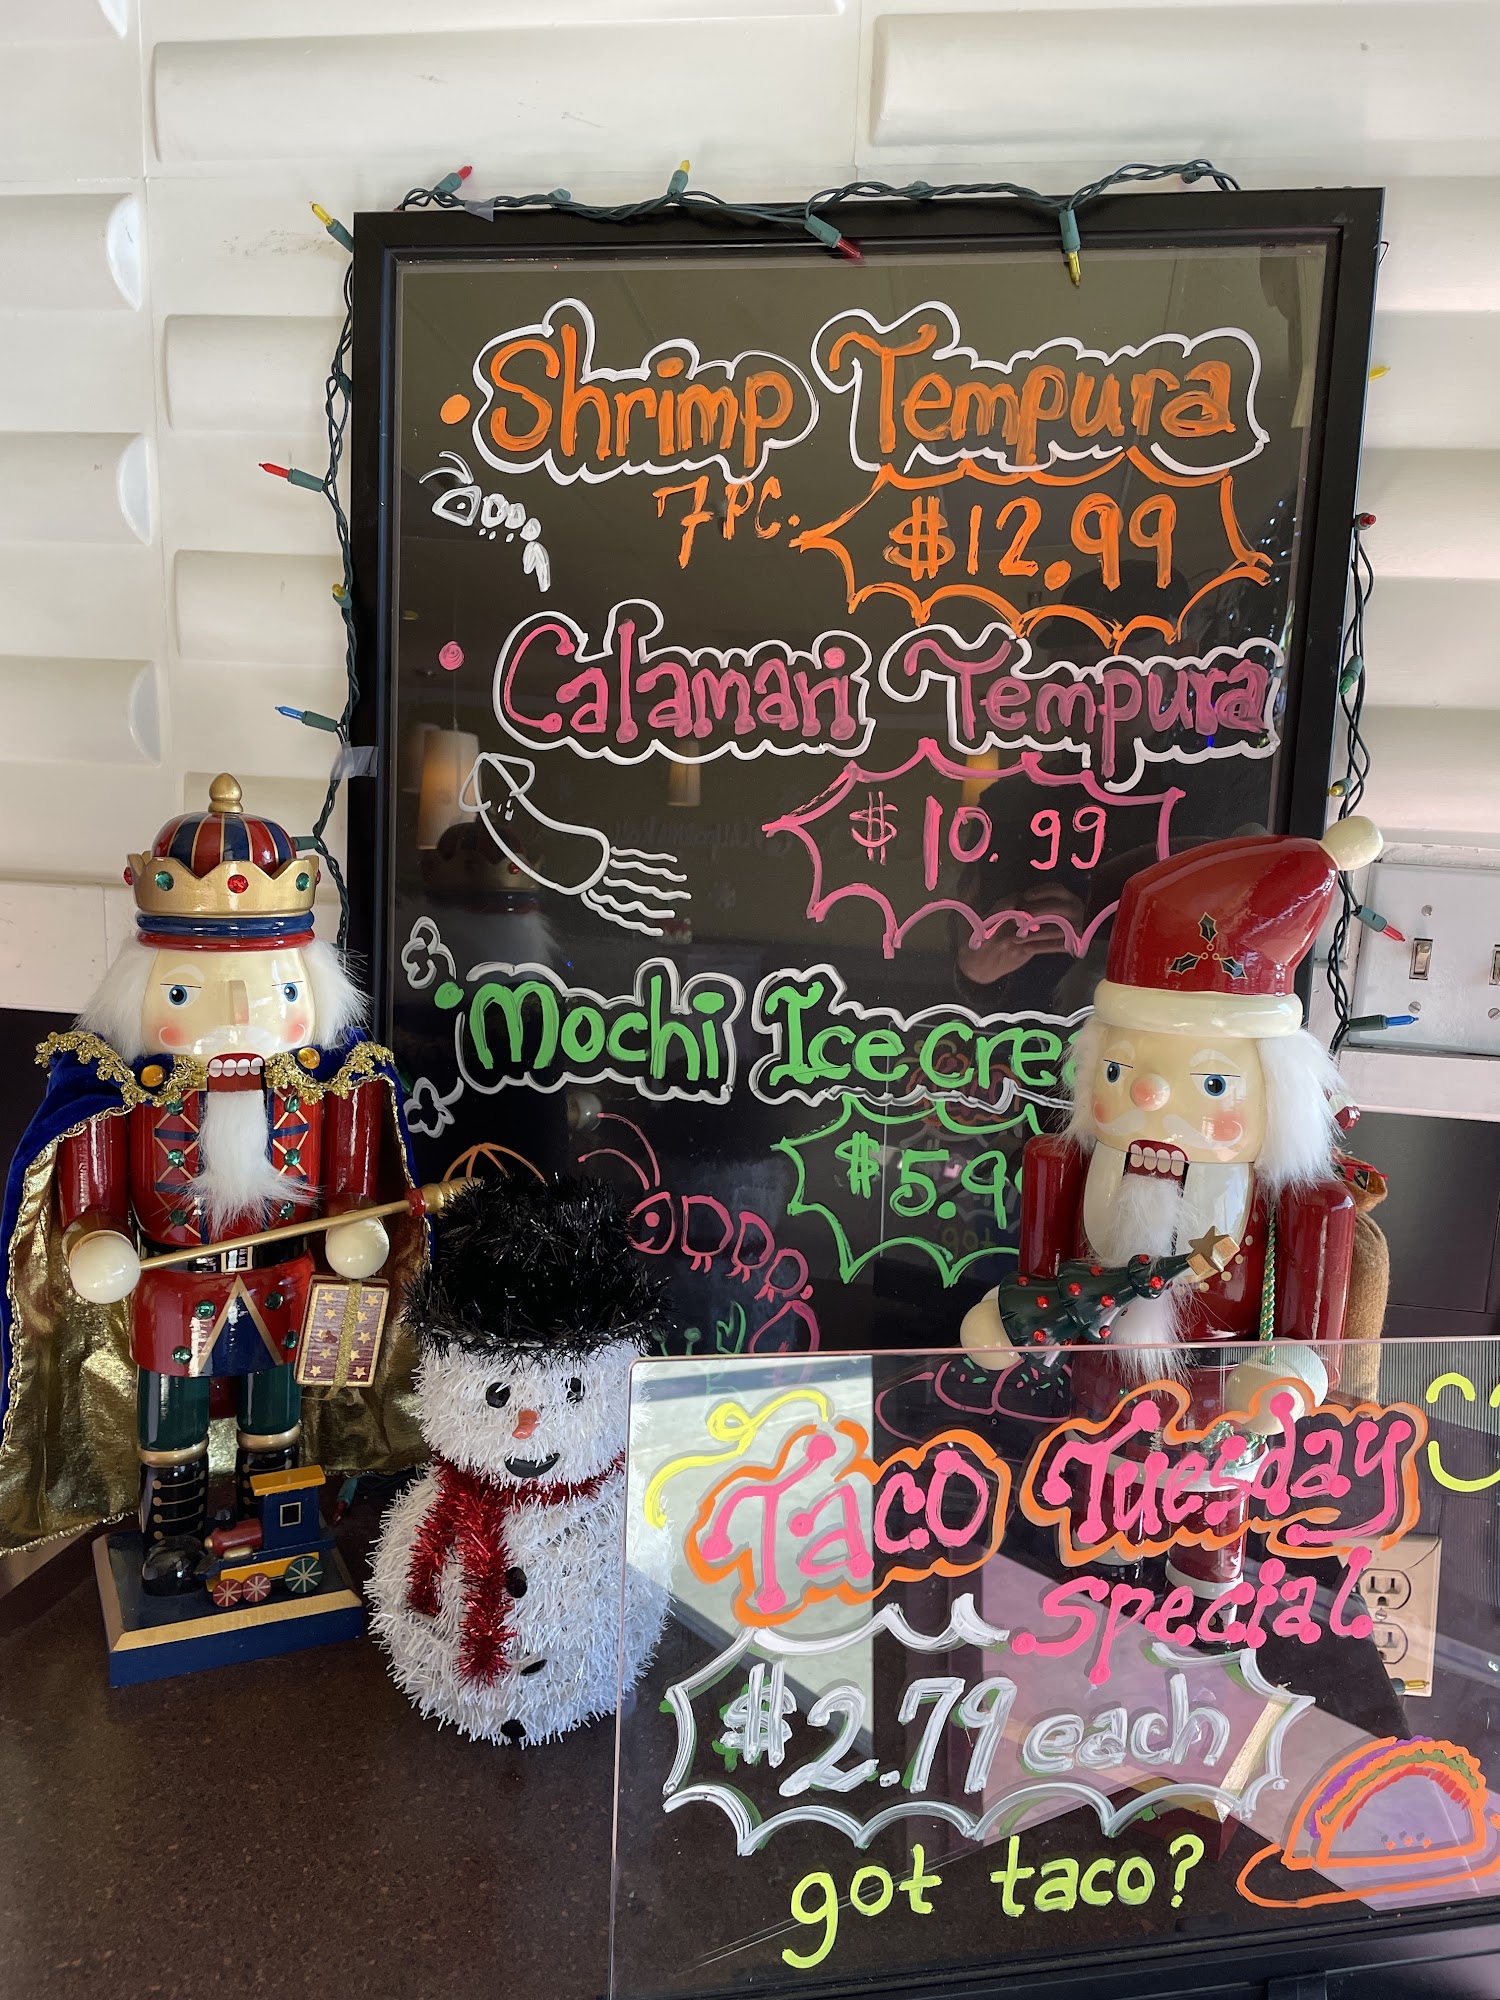 Shrimp Tempura
7 PC. $12.99
Calamari Tempura
$10.99
Mochi Ice Crea
$5.9
Taco Tuesday
special
$2.79 each
got taco?